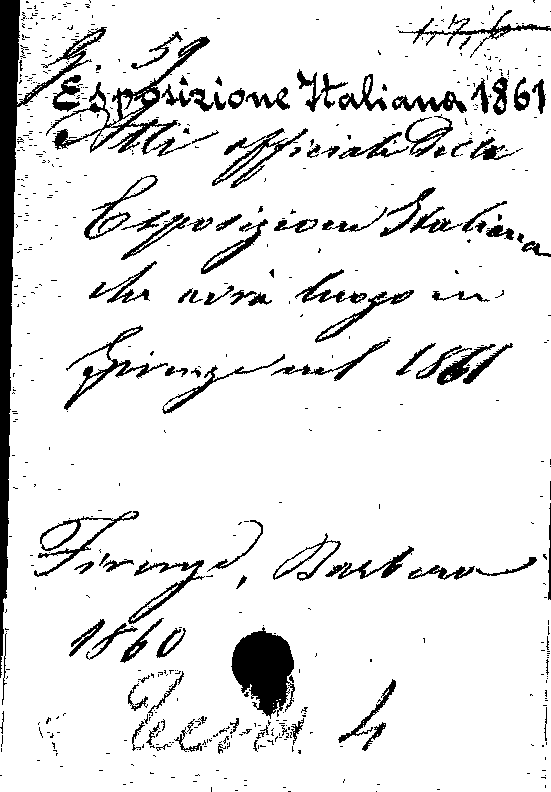 G. 59
Esposizione Italiana 1861
Atti officiali della
Esposizione Italiana
che avrà luogo in
Firenze nel 1861
Firenze, Barbera
1860
4